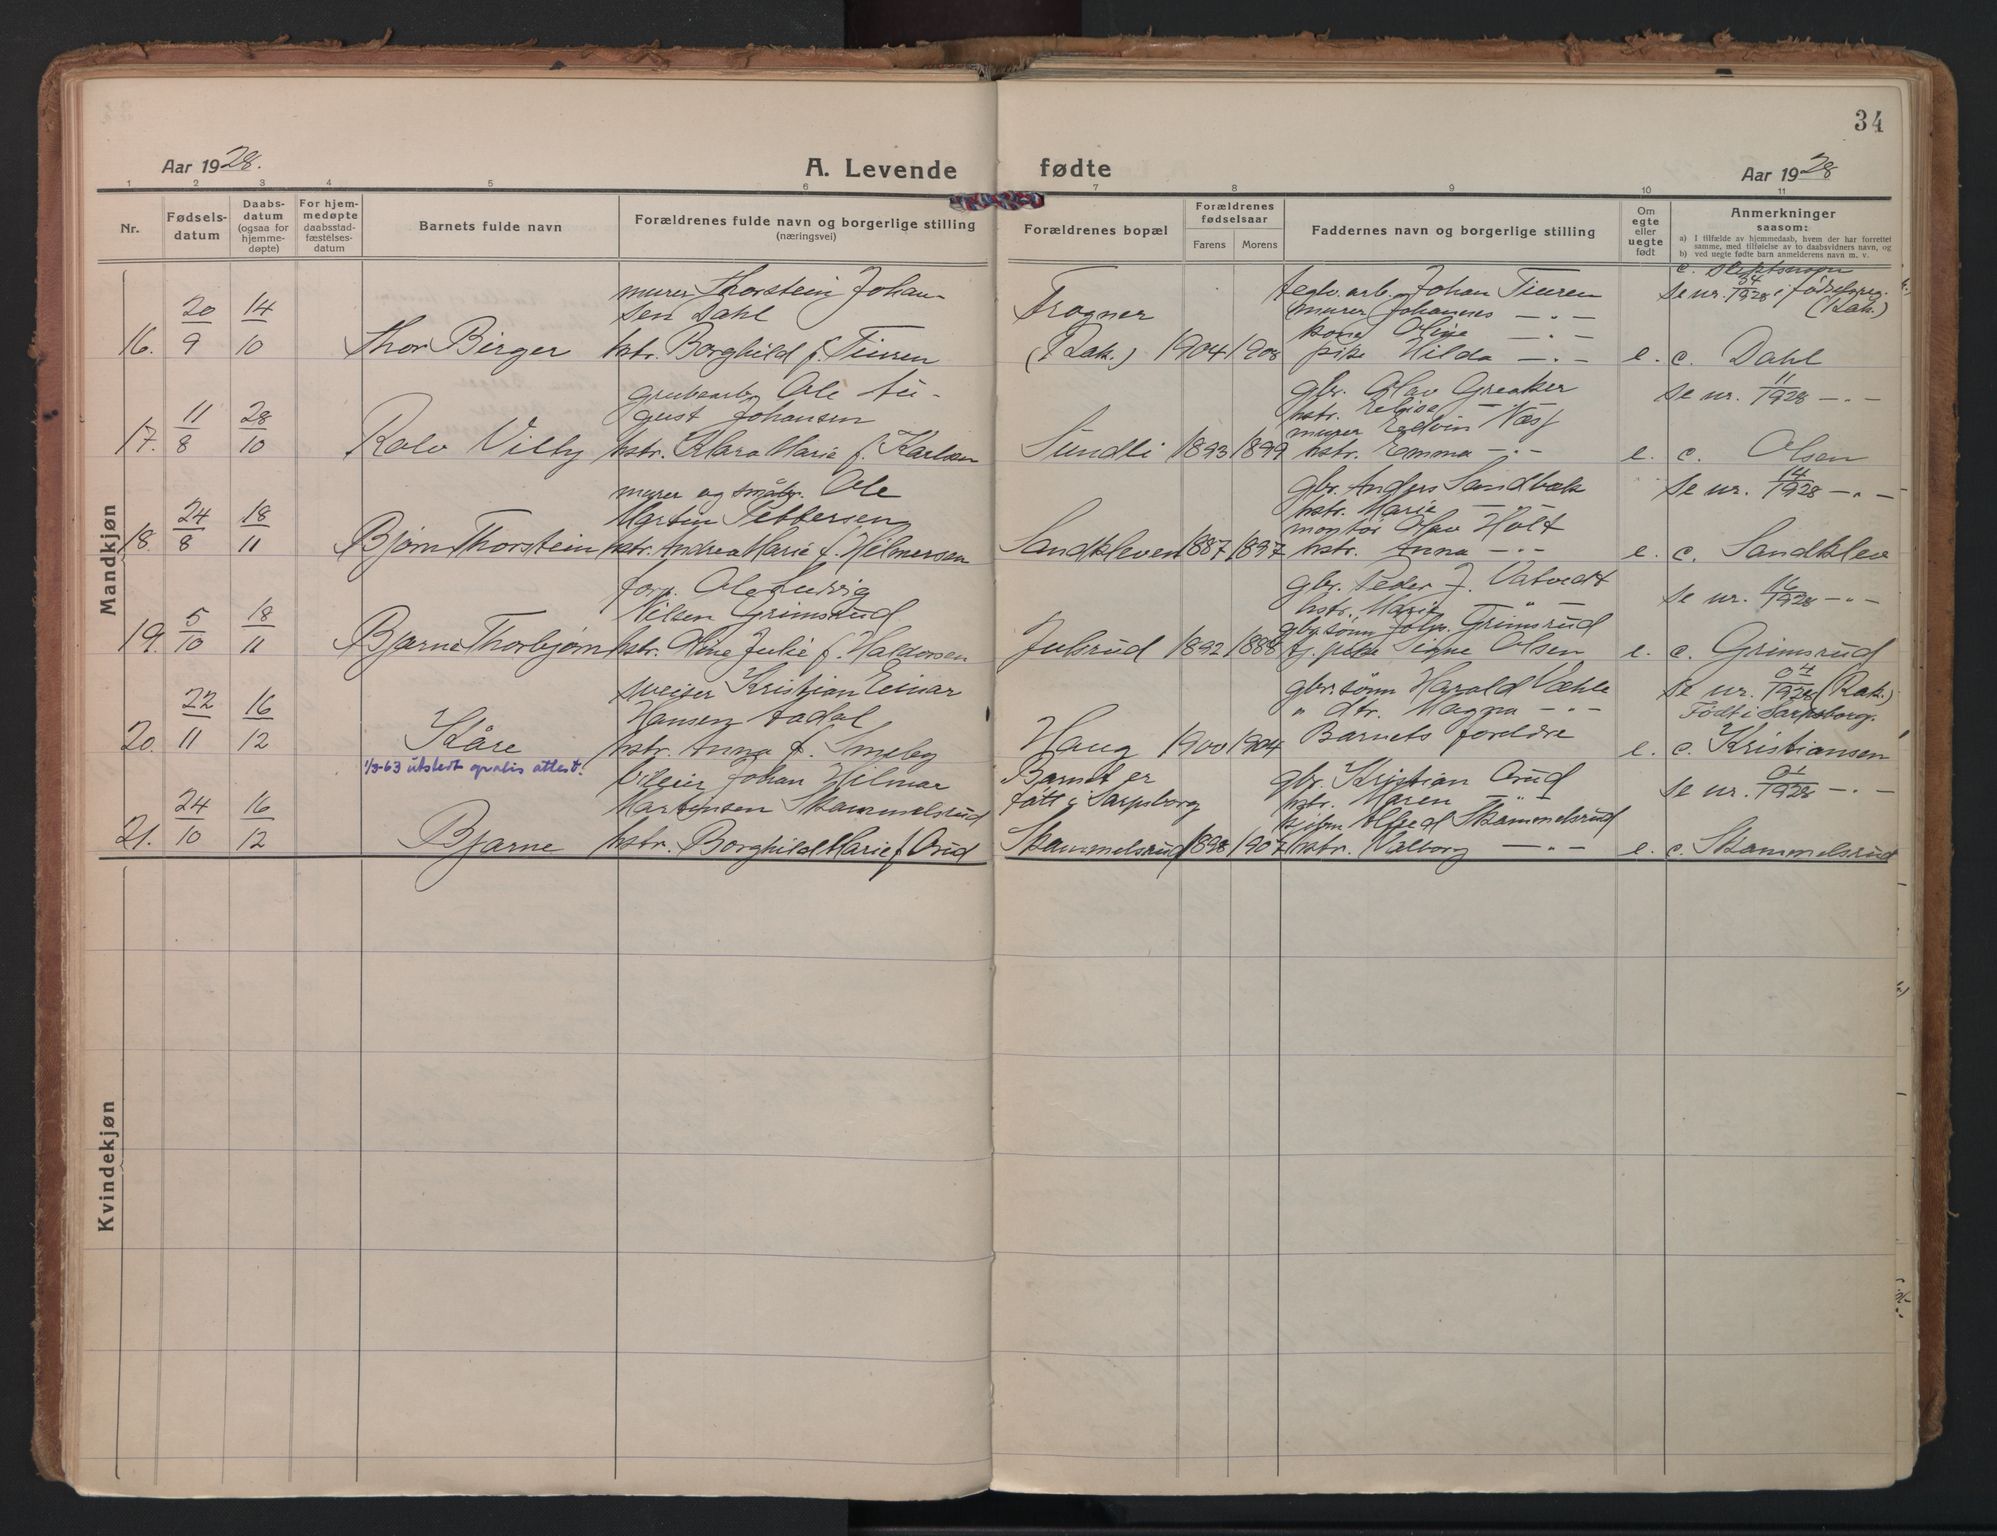 34
Aar 1928.
A. Levende fødte
Aar 1928
1 2 3 4 5 6 7 8 9 10 11
Nr.
Fødsels-
datum
Daabs-
datum
(ogsaa for
hjemme-
døpte)
For hjem-
medøpte
daabsstad-
fæstelses-
datum
Barnets fulde navn
Forældrenes fulde navn og borgerlige stilling
(næringsvei)
Forældrenes bopæl
Forældrenes
fødselsaar
Farens Morens
Faddernes navn og borgerlige stilling
Om
egte
eller
uegte
født
Anmerkninger
saasom:
a) I tilfælde av hjemmedaab, hvem der har forrettet
samme, med tilføielse av to daabsvidners navn, og
b) ved uegte fødte barn anmelderens navn m. v.
c. slektsnavn
Mandkjøn
16.
20/9
14/10
Thor Birger
murer Thorstein Johan-
sen Dahl
hstr. Borghild f. Tieren
Frogner
(Rak.)
1904 1908
teglv. arb. Johan Tieren
murer Johannes -"-
kone Oline -"-
pike Hilda -"-
e.
Se nr. 34/1928 i fødselsreg.
(Rak.)
c. Dahl
17.
11/8
28/10
Rolv Villy
grubearb. Ole Au-
gust Johansen
hstr. Klara Marie f. Karlsen
Sundli
1893 1899
gbr. Olav Greaker
hstr. -"-
murer Edvin Næss
hstr. Emma -"-
e.
Se nr. 11/1928 -"-
c. Olsen
18.
24/8
18/11
Bjørn Thorstein
murer og småbr. Ole
Martin Pettersen
hstr. Andrea Marie f. Hilmersen
Sandkleven
1887 1897
gbr. Anders Sandbæk
hstr. Marie -"-
montør Olav Holt
hstr. Anna -"-
e.
Se nr. 14/1928 -"-
c. Sandklev
19.
5/10
18/11
Bjarne Thorbjørn
forp. Ole Ludvig
Nilsen Grimsrud
hstr. Oline Julie f. Haldorsen
Julsrud
1892 1888
gbr. Peder J. Vatvedt
hstr. Marie -"-
gbr.sønn Johs. Grimsrud
tj. pike Signe Olsen
e.
Se nr. 16/1928 -"-
c. Grimsrud
20.
22/11
16/12
Kåre
1/3-63 utstedt gratis attest.
sveiser Kristian Einar
Hansen Aadal
hstr. Anna f. Smeby
Haug
1900 1904
gbr.sønn Harald Væhle
" dtr. Magna -"-
Barnets foreldre
e.
Se nr. 04/1928 (Rak.)
Født i Sarpsborg.
c. Kristiansen
21.
24/10
16/12
Bjarne
Johan Hilmar
Martinsen Skammelsrud
hstr. Borghild Marie f. Orud
Barnet er
født i Sarpsborg
Skammelsrud
1898 1907
gbr. Kristian Orud
hstr. Maren -"-
Alfred Skammelsrud
hstr. Valborg -"-
e.
Se nr. 01/1928 -"-
c. Skammelsrud
Kvindekjøn